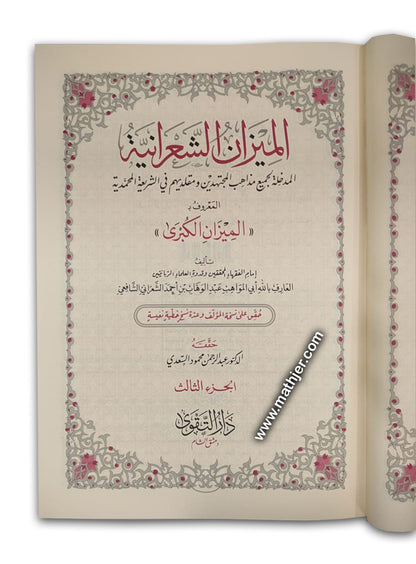 الميزان الشعرانية
المدخلة لجميع مذاهب المجتهدين ومقلديهم في الشريعة المحمدية
المعروف بـ
«الميزان الكبرى»
تأليف
إمام الفقهاء المحققين وقدوة العلماء الربانيين
العارف بالله أبي المواهب عبد الوهاب بن أحمد الشعراني الشافعي
حقق على نسخة المؤلف وعدة نسخ خطية نفيسة
حققه
الدكتور عبد الرحمن محمود السعدي
الجزء الثالث
دار التقوى
دمشق الشام
www.mathjer.com